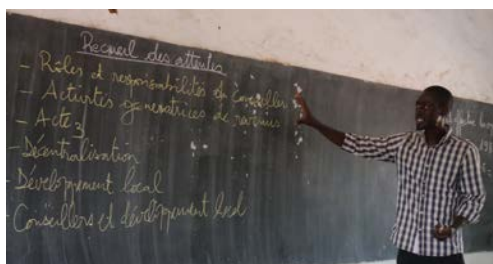 Recueil des attentes
- Rôles et responsabilités du conseiller
- Activités génératrices de revenus
- Acte 3
- Décentralisation
- Développement local
- Conseillers et développement local